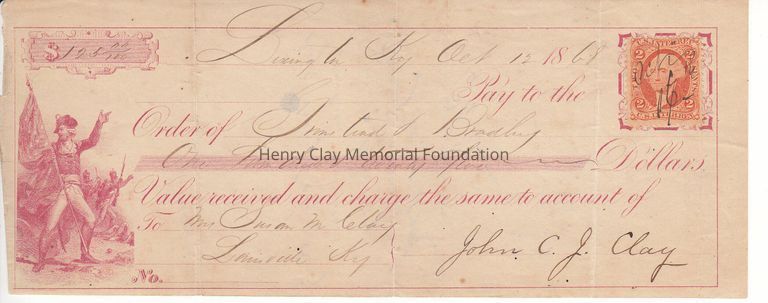 $ 125 00/100
Lexington Ky Oct 12 1868
Pay to the
Order of & Bradley
One Hundred & twenty five Dollars
Henry Clay Memorial Foundation
Value received and charge the same to account of
To Mrs Susan M Clay
Louisville Ky John C. J. Clay
No.
2 2
2 2